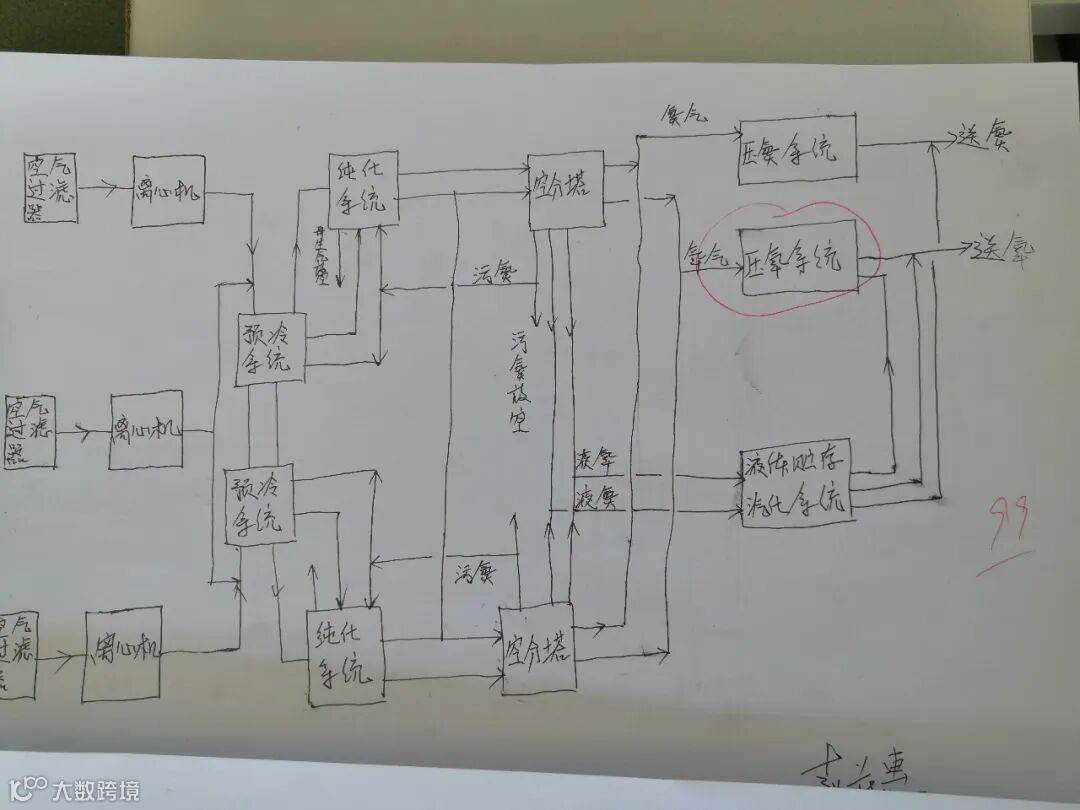 氮气
压氮系统
送氮
空气
过滤
器
离心机
纯化
系统
空分塔
再生放空
污氮
氧气
压氧系统
送氧
预冷
系统
污氮放空
空气
过滤
器
离心机
液氧
液氮
液体贮存
汽化系统
预冷
系统
99
污氮
空气
过滤
器
离心机
纯化
系统
空分塔
大数跨境